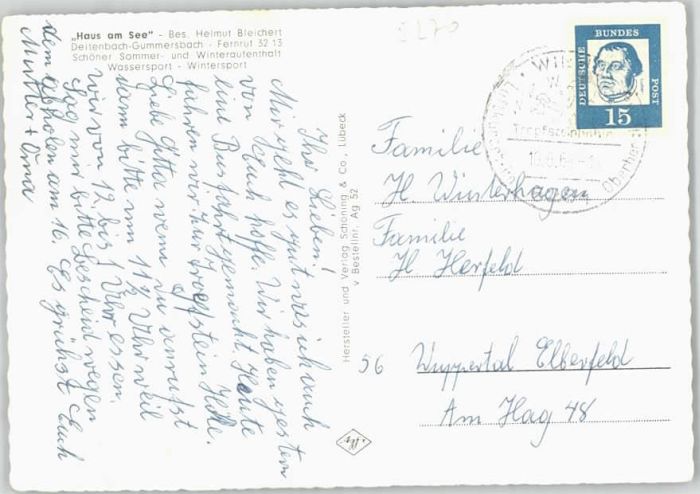 „Haus am See" - Bes. Helmut Bleichert
Deitenbach-Gummersbach - Fernruf 32 13
Schöner Sommer- und Winteraufenthalt
Wassersport - Wintersport
Ihr Lieben!
Mir geht es gut was ich auch
von Euch hoffe. Wir haben gestern
eine Busfahrt gemacht. Heute
fahren wir zur Tropfstein Höhle.
Liebe Gitta wenn du anrufst
dann bitte um 11½ Uhr weil
wir von 12 bis 1 Uhr essen.
Sag mir bitte Bescheid wegen
dem abholen am 16. Es grüßt Euch
Mutter + Oma
Hersteller und Verlag Schöning & Co., Lübeck
v Bestellnr. Ag 52
5270
DEUTSCHE BUNDES POST
15
Wie
Tropfsteinhöhle
Oberber
Familie
H. Winterhagen
Familie
H Herfeld
56 Wuppertal Elberfeld
Am Hag 48